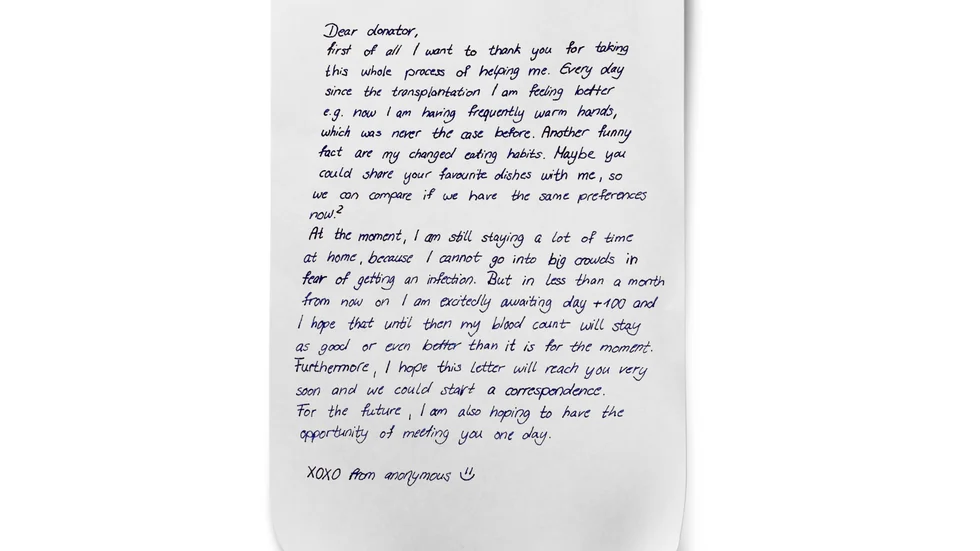 Dear donator,
first of all I want to thank you for taking
this whole process of helping me. Every day
since the transplantation I am feeling better
e.g. now I am having frequently warm hands,
which was never the case before. Another funny
fact are my changed eating habits. Maybe you
could share your favourite dishes with me, so
we can compare if we have the same preferences
now.²
At the moment, I am still staying a lot of time
at home, because I cannot go into big crowds in
fear of getting an infection. But in less than a month
from now on I am excitedly awaiting day +100 and
I hope that until then my blood count will stay
as good or even better than it is for the moment.
Furthermore, I hope this letter will reach you very
soon and we could start a correspondence.
For the future, I am also hoping to have the
opportunity of meeting you one day.
XOXO from anonymous